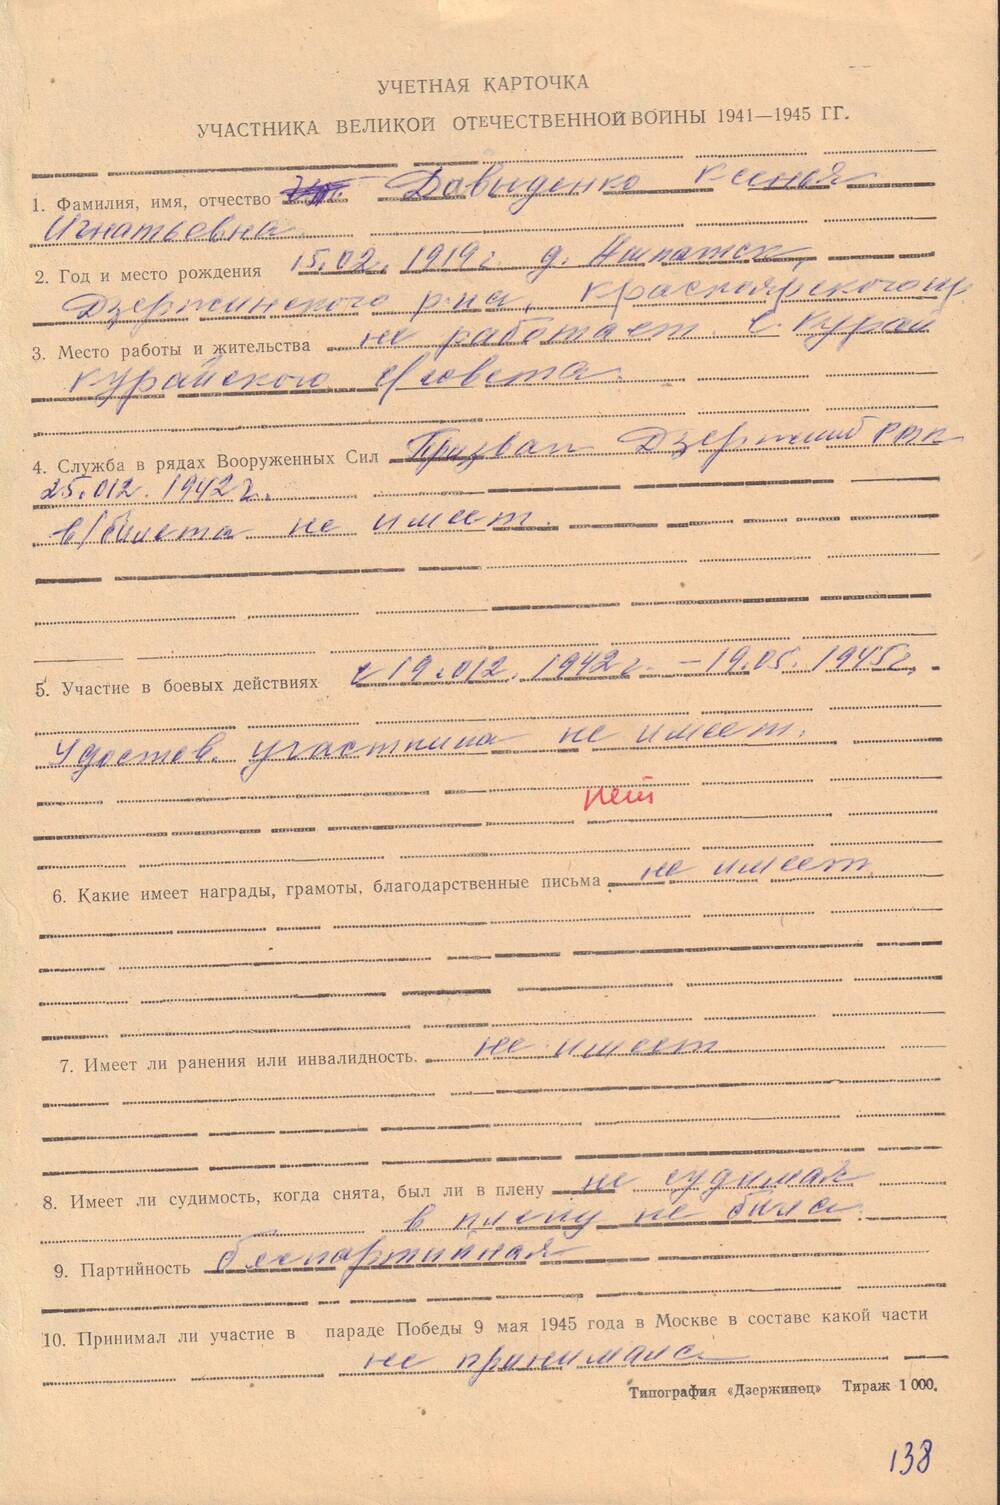 УЧЕТНАЯ КАРТОЧКА
УЧАСТНИКА ВЕЛИКОЙ ОТЕЧЕСТВЕННОЙ ВОЙНЫ 1941—1945 ГГ.
1. Фамилия, имя, отчество Давыденко Ксенья
Игнатьевна
2. Год и место рождения 15.02.1919 г. д.
Дзержинского р-на, Красноярского кр.
3. Место работы и жительства не работает. с. Курай
Курайского с/совета.
4. Служба в рядах Вооруженных Сил Призван РВК
25.012.1942 г.
в/билета не имеет.
5. Участие в боевых действиях с 19.012.1942 г. – 19.05.1945 г.
Удостов. участника не имеет.
нет
6. Какие имеет награды, грамоты, благодарственные письма не имеет.
7. Имеет ли ранения или инвалидность. не имеет
8. Имеет ли судимость, когда снята, был ли в плену не судимая
в плену не была
9. Партийность беспартийная
10. Принимал ли участие в параде Победы 9 мая 1945 года в Москве в составе какой части
не принимала
Типография «Дзержинец» Тираж 1 000.
138